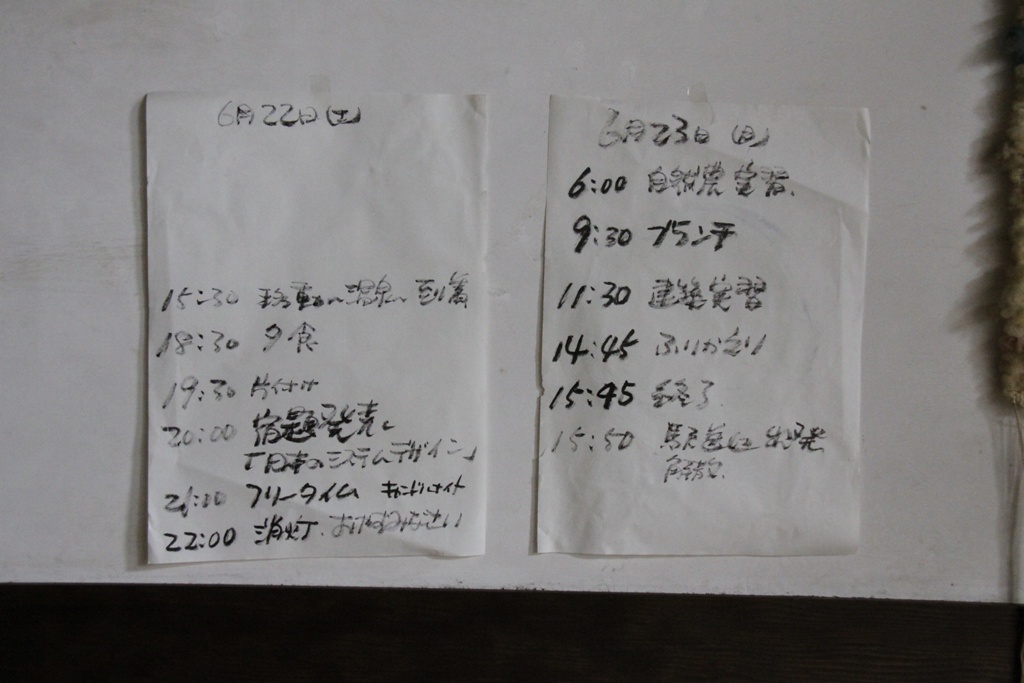 6月22日(土)
15:30 温泉へ 到着
18:30 夕食
19:30 片付け
20:00 宿題発表と
「日本のシステムデザイン」
21:10 フリータイム キャンドルナイト
22:00 消灯. おやすみなさい
6月23日(日)
6:00 自然農実習.
9:30 ブランチ
11:30 建築実習
14:45 ふりかえり
15:45 終了
15:50 駅 出発
解散